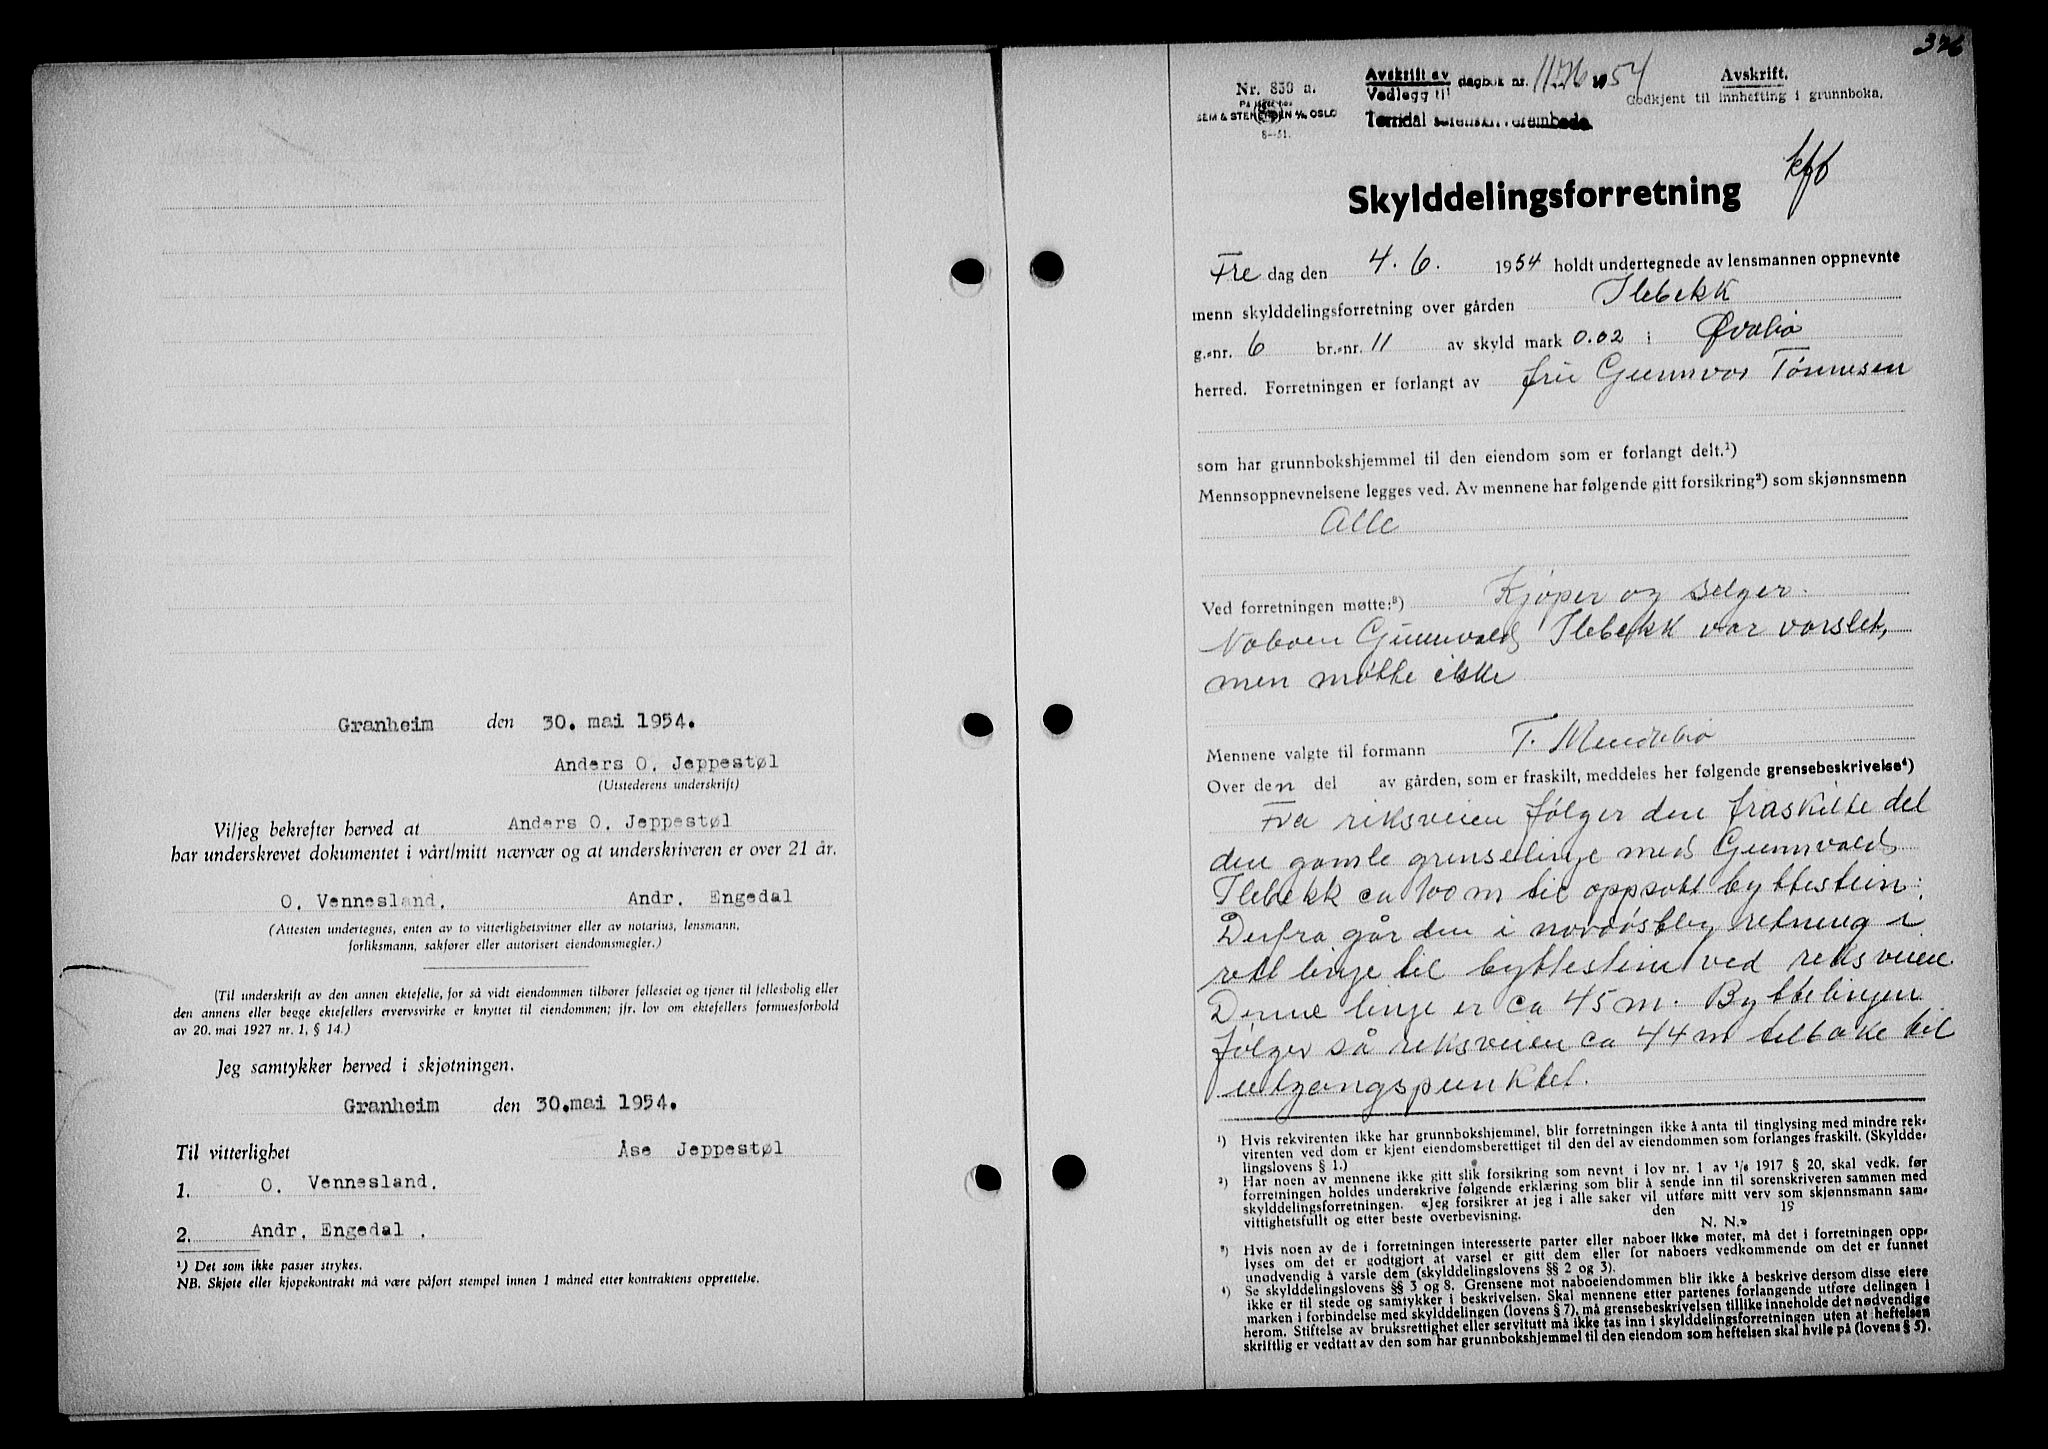 Granheim den 30. mai 1954.
Anders O. Jeppestøl
(Utstederens underskrift)
Vi/jeg bekrefter herved at Anders O. Jeppestøl
har underskrevet dokumentet i vårt/mitt nærvær og at underskriveren er over 21 år.
O. Vennesland. Andr. Engedal
(Attesten undertegnes, enten av to vitterlighetsvitner eller av notarius, lensmann,
forliksmann, sakfører eller autorisert eiendomsmegler.)
(Til underskrift av den annen ektefelle, for så vidt eiendommen tilhører felleseiet og tjener til fellesbolig eller
den annens eller begge ektefellers ervervsvirke er knyttet til eiendommen; jfr. lov om ektefellers formuesforhold
av 20. mai 1927 nr. 1, § 14.)
Jeg samtykker herved i skjøtningen.
Granheim den 30. mai 1954.
Til vitterlighet Åse Jeppestøl
1. O. Vennesland.
2. Andr. Engedal .
¹) Det som ikke passer strykes.
NB. Skjøte eller kjøpekontrakt må være påført stempel innen 1 måned etter kontraktens opprettelse.
376
Nr. 830 a.
SEM & STENERSEN A/S OSLO
8—51.
Avskrift av
Vedlegg til dagbok nr. 1126 1954
Torridal sorenskriverembede.
Avskrift.
Godkjent til innhefting i grunnboka.
Skylddelingsforretning
Fre dag den 4. 6. 1954 holdt undertegnede av lensmannen oppnevnte
menn skylddelingsforretning over gården Ilebekk
g.-nr. 6 br.-nr. 11 av skyld mark 0.02 i Øvrebø
herred. Forretningen er forlangt av fru Gunnvor Tønnesen
som har grunnbokshjemmel til den eiendom som er forlangt delt.¹)
Mennsoppnevnelsene legges ved. Av mennene har følgende gitt forsikring²) som skjønnsmenn
Alle
Ved forretningen møtte:³) Kjøper og selger.
Naboen Gunnvald Ilebekk var varslet,
men møtte ikke
Mennene valgte til formann T.
Over den del av gården, som er fraskilt, meddeles her følgende grensebeskrivelse⁴)
Fra riksveien følger den fraskilte del
den gamle grenselinje med Gunnvald
Ilebekk ca 100 m til oppsatt byttestein:
Derfra går den i nordøstleg retning i
rett linje til byttestein ved riksveien
Denne linje er ca 45 m. Byttelinjen
følger så riksveien ca 44 m tilbake til
utgangspunktet.
¹) Hvis rekvirenten ikke har grunnbokshjemmel, blir forretningen ikke å anta til tinglysing med mindre rek-
virenten ved dom er kjent eiendomsberettiget til den del av eiendommen som forlanges fraskilt. (Skyldde-
lingslovens § 1.)
²) Har noen av mennene ikke gitt slik forsikring som nevnt i lov nr. 1 av 1/6 1917 § 20, skal vedk. før
forretningen holdes underskrive følgende erklæring som blir å sende inn til sorenskriveren sammen med
skylddelingsforretningen. «Jeg forsikrer at jeg i alle saker vil utføre mitt verv som skjønnsmann sam-
vittighetsfullt og etter beste overbevisning. den 19
N. N.»
³) Hvis noen av de i forretningen interesserte parter eller naboer ikke møter, må det i forretningen opp-
lyses om det er godtgjort at varsel er gitt dem eller for naboers vedkommende om det er funnet
unødvendig å varsle dem (skylddelingslovens §§ 2 og 3).
⁴) Se skylddelingslovens §§ 3 og 8. Grensene mot naboeiendommen blir ikke å beskrive dersom disse eiere
ikke er til stede og samtykker i beskrivelsen. Skal mennene etter partenes forlangende utføre delingen i
marken i forbindelse med skylddelingen (lovens § 7), må grensebeskrivelsen tillike inneholde det nødvendige
herom. Stiftelse av bruksrettighet eller servitutt må ikke tas inn i skylddelingsforretningen uten at heftelsen
skriftlig er vedtatt av den som har grunnbokshjemmel til den eiendom som heftelsen skal hvile på (lovens § 5).